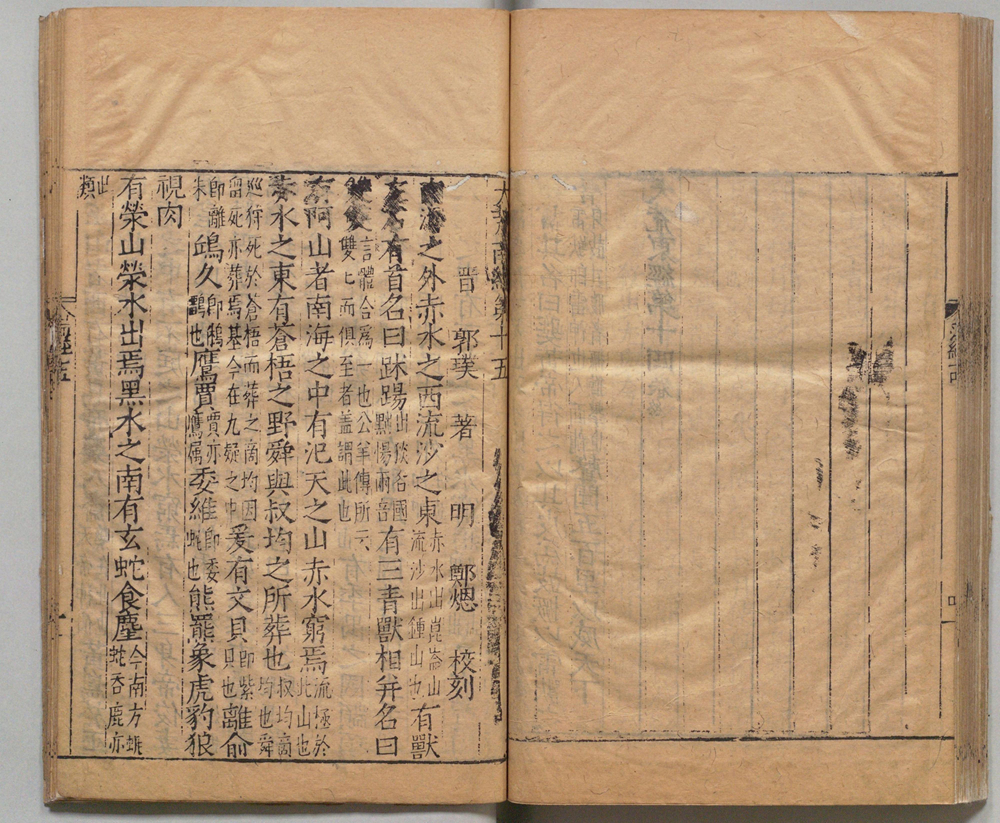 大荒南經第十五
晋 郭璞 著 明 鄭煾 校刻
南海之外赤水之西流沙之東赤水出崑崙山流沙出鍾山也有獸
左右有首名曰䟣踢出俊名國黜惕兩音有三青獸相并名曰
雙雙言體合爲一也公羊傳所云雙雙而俱至者蓋謂此也
有阿山者南海之中有汜天之山赤水窮焉流極於此山也
赤水之東有蒼梧之野舜與叔均之所葬也叔均商均也舜
巡狩死於蒼梧而葬之商均因留死亦葬焉基今在九疑之中爰有文貝即紫貝也離俞
即離朱鴟久即鵂鶹也鷹賈賈亦鷹属委維即委蛇也熊羆象虎豹狼
視肉
有榮山榮水出焉黑水之南有玄蛇食麈今南方蚺蛇吞鹿亦
此類